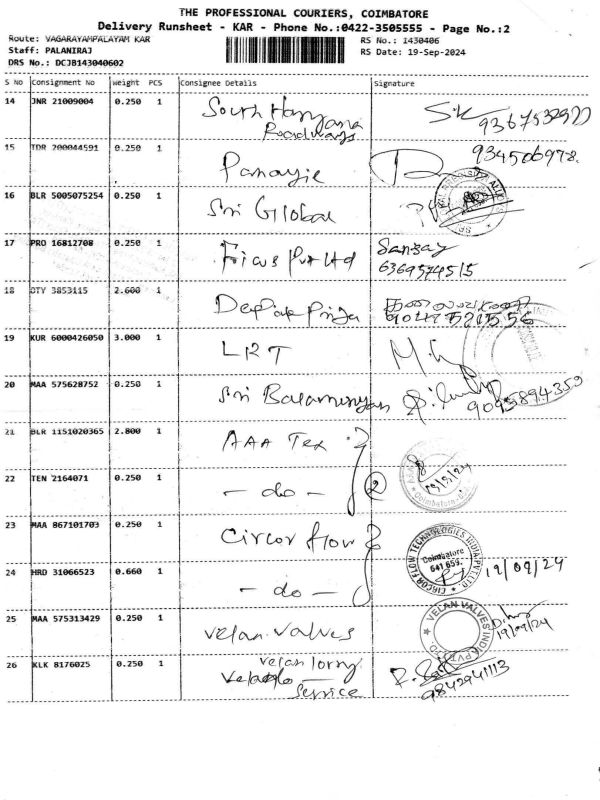 THE PROFESSIONAL COURIERS, COIMBATORE
Delivery Runsheet - KAR - Phone No.:0422-3505555 - Page No.:2
Route: VAGARAYAMPALAYAM KAR
RS No.: 1430406
Staff: PALANIRAJ
RS Date: 19-Sep-2024
DRS No.: DCJB143040602
S No Consignment No Weight PCS Consignee Details Signature
14 JNR 21009004 0.250 1 South Haryana
Roadways
15 TDR 200044591 0.250 1
16 BLR 5005075254 0.250 1 Sri Global
17 PRO 16812708 0.250 1 Pvt Ltd Sanjay
6369574515
18 DTY 3853115 2.600 1 Deepak
19 KUR 6000426050 3.000 1 LRT
20 MAA 575628752 0.250 1 Sri
9095894350
21 BLR 1151020365 2.800 1 AAA Tex
22 TEN 2164071 0.250 1 - do - 2 19/9/24
23 MAA 867101703 0.250 1 Circor flow CIRCOR FLOW TECHNOLOGIES INDIA PVT LTD
Coimbatore
641 659.
19/09/24
24 HRD 31066523 0.660 1 - do -
25 MAA 575313429 0.250 1 velan valves VELAN VALVES INDIA PVT
19/09/24
26 KLK 8176025 0.250 1 velan lorry
service
9842941113